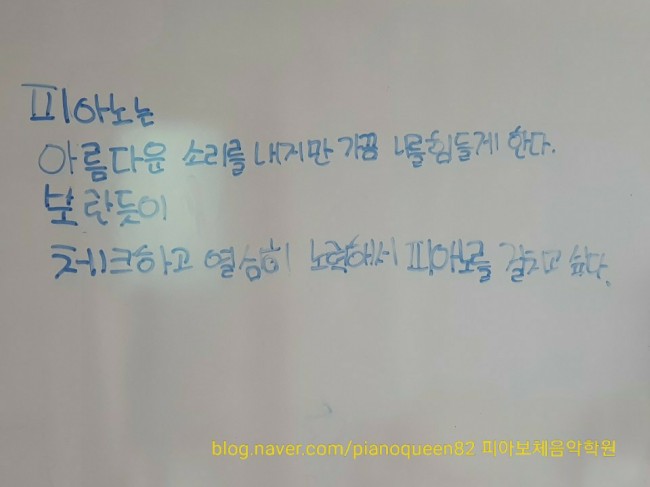 피아노는
아름다운 소리를 내지만 가끔 나를 힘들게 한다.
보란듯이
체크하고 열심히 노력해서 피아노를 잘치고 싶다.
blog.naver.com/pianoqueen82 피아보체음악학원